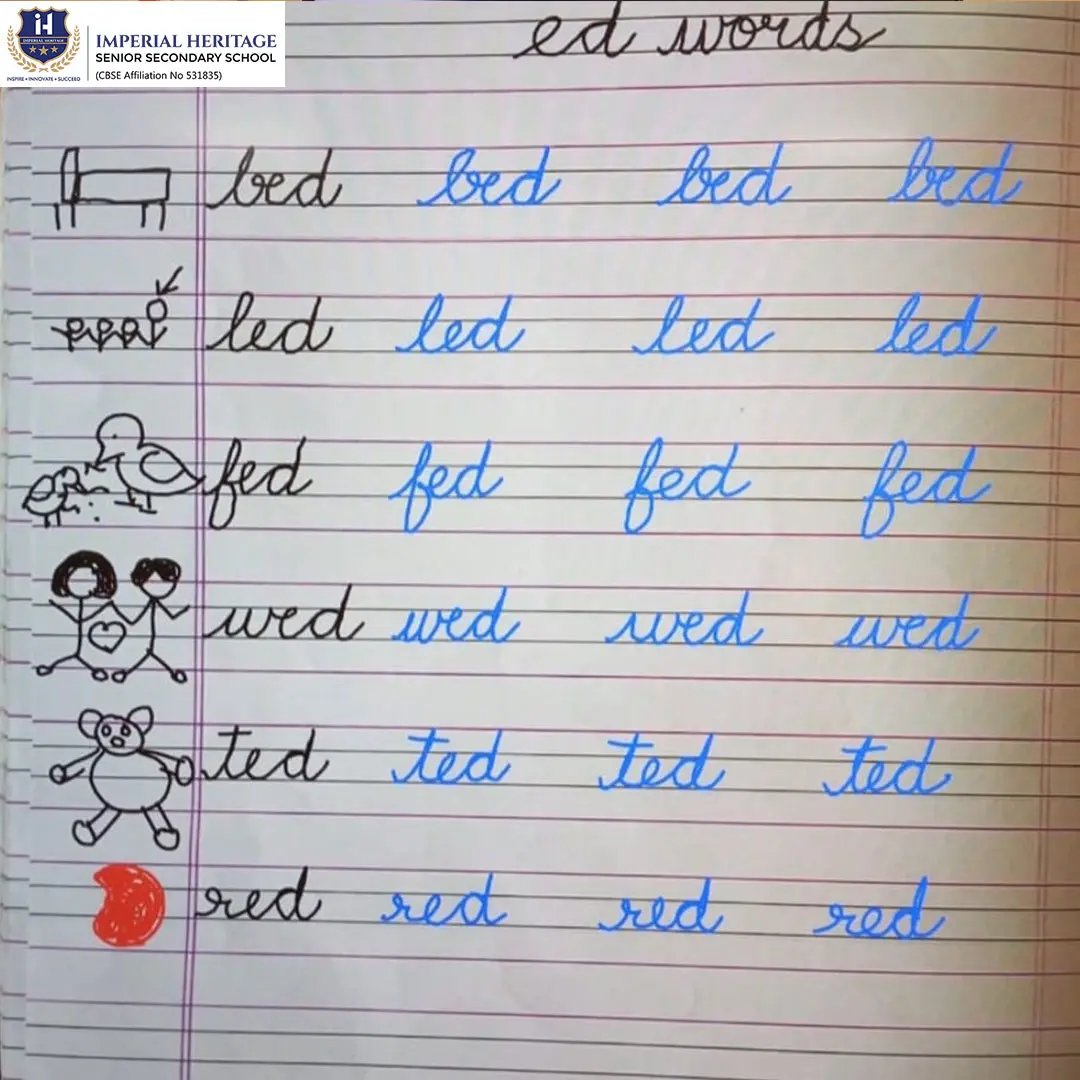 IMPERIAL HERITAGE
SENIOR SECONDARY SCHOOL
(CBSE Affiliation No 531835)
IH
IMPERIAL HERITAGE
INSPIRE • INNOVATE • SUCCEED
ed words
bed bed bed bed
led led led led
fed fed fed fed
wed wed wed wed
ted ted ted ted
red red red red